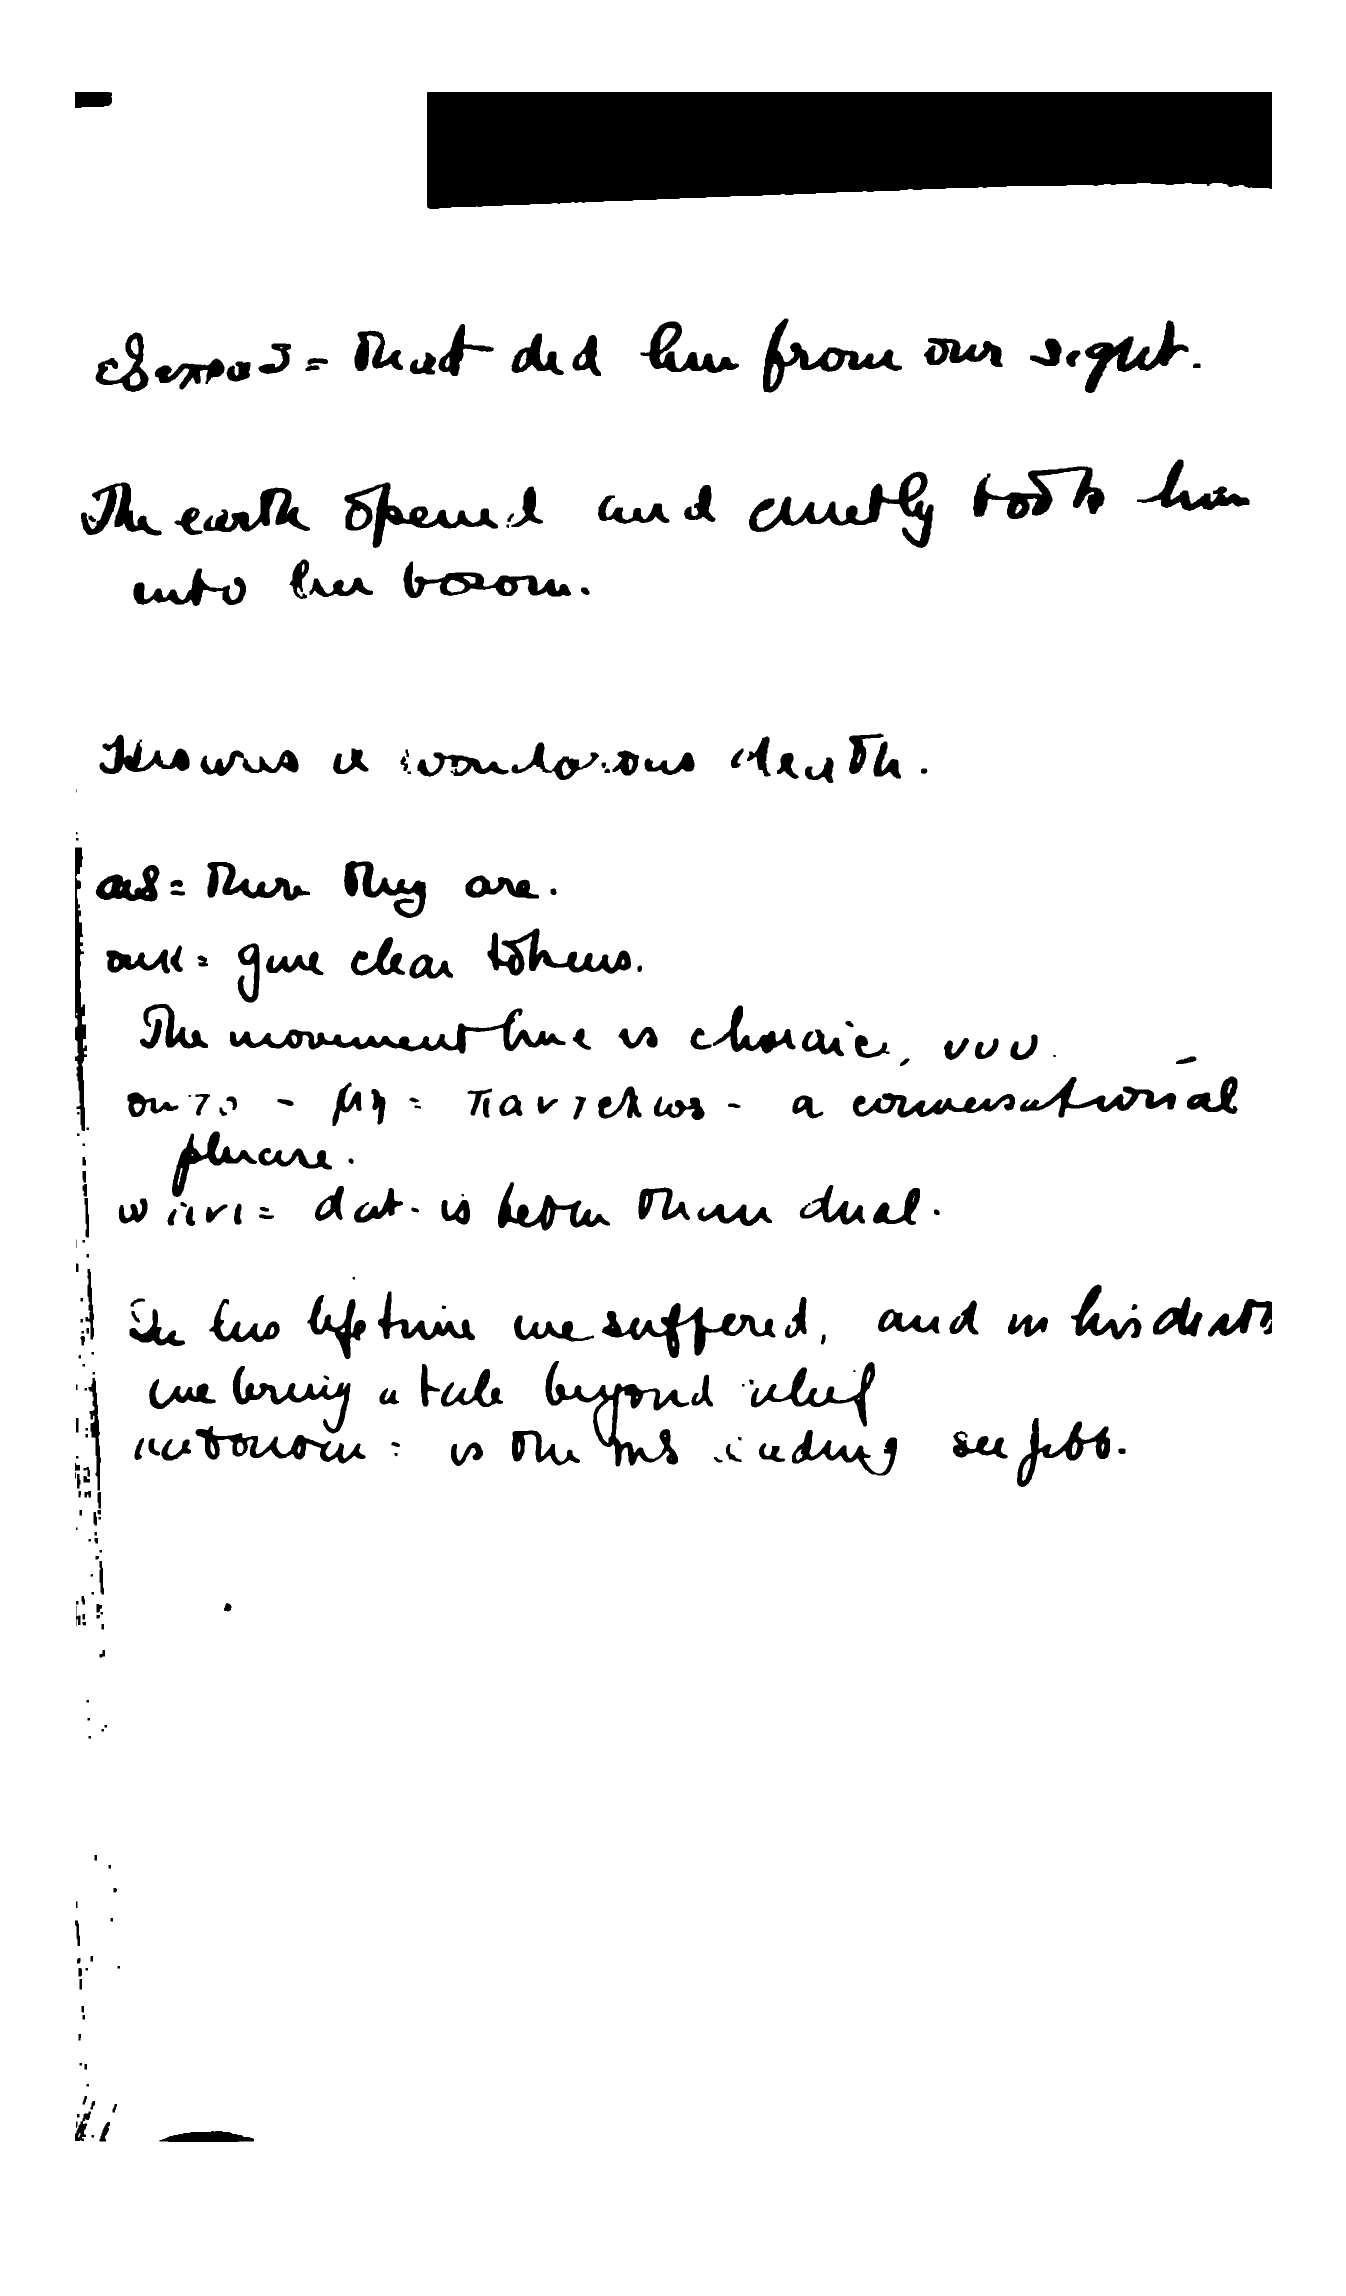 ἐξέπραξε = that did him from our sight.
The earth opened and quietly took him
into her bosom.
His was a wonderous death.
αἱδ = there they are.
οὐκ = give clear tokens.
The movement here is choraic, υυυ
οὔτο - μὴ = παντελῶς - a conversational
phrase.
dat. is better than dual.
In his lifetime we suffered, and in his death
we bring a tale beyond
is the MS reading see Jebb.